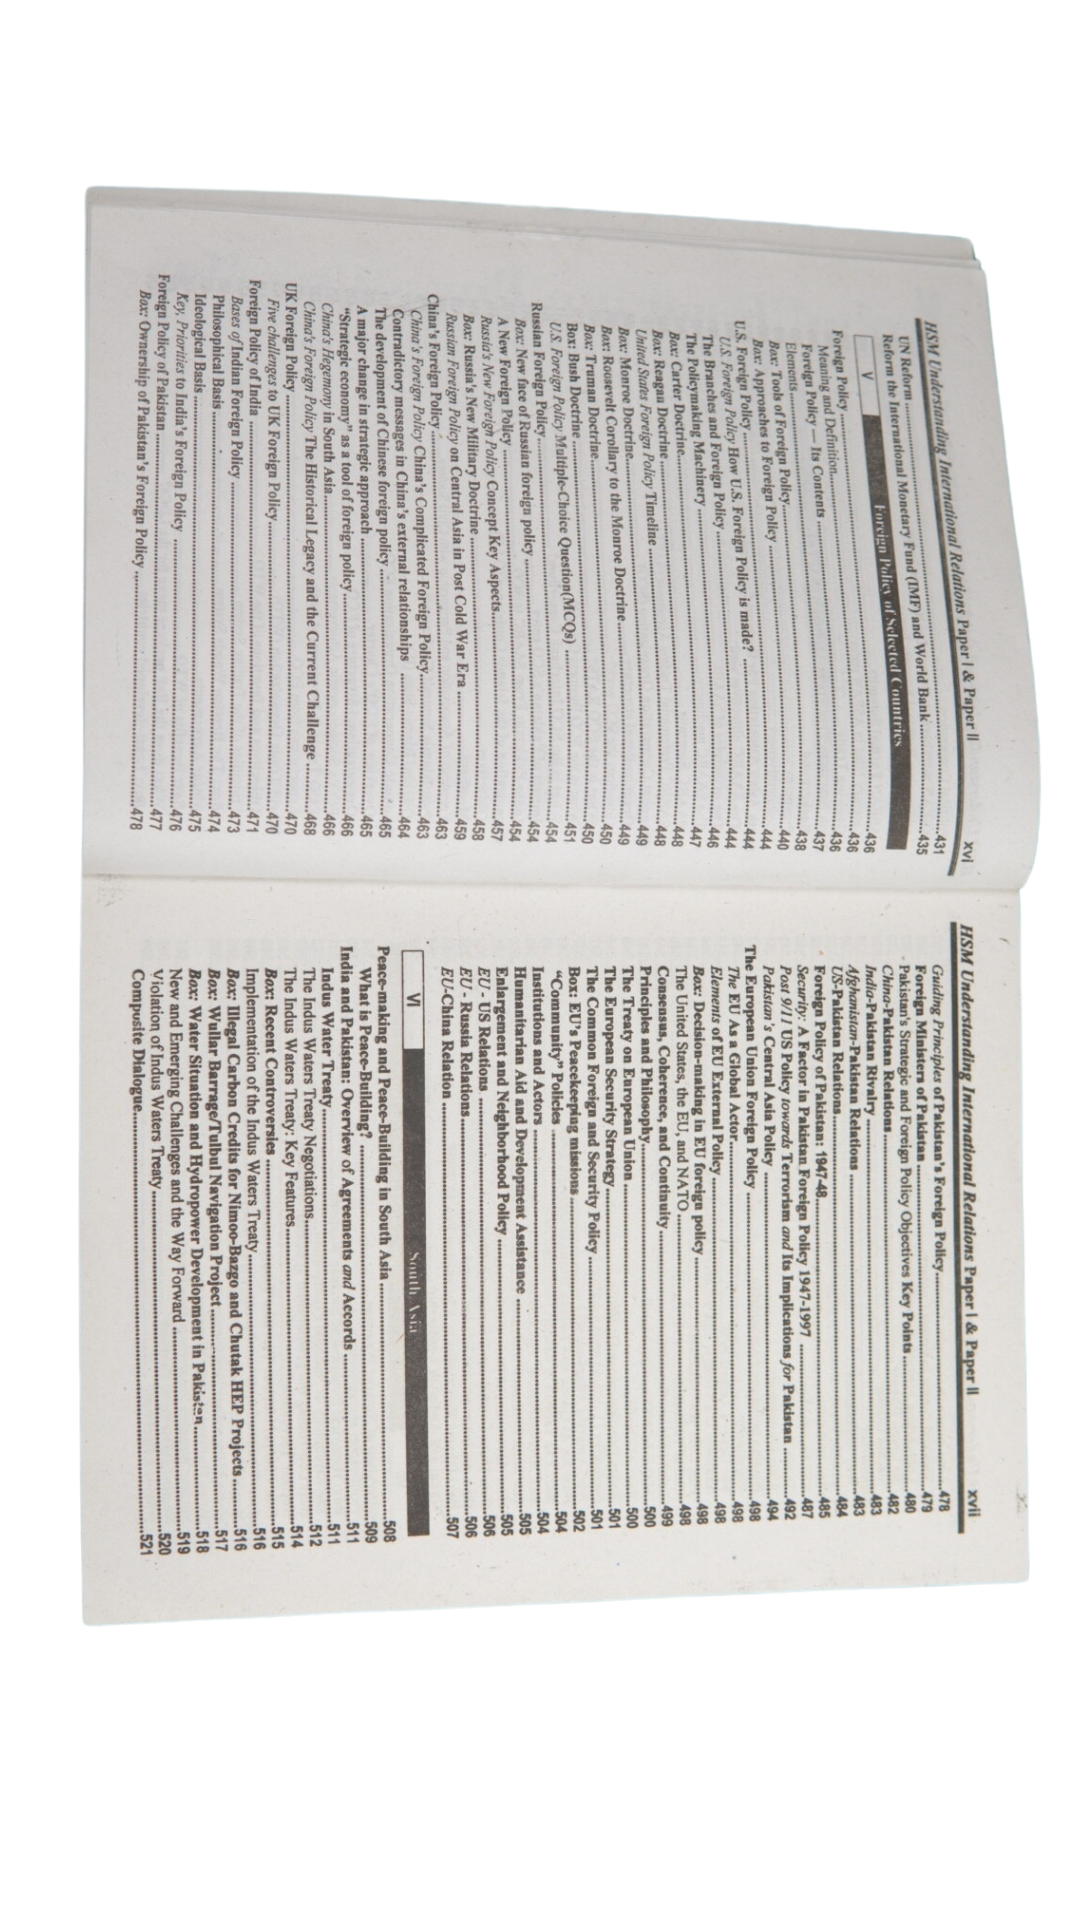 HSM Understanding International Relations Paper I & Paper II xvi
UN Reform ........ 431
Reform the International Monetary Fund (IMF) and World Bank ........ 435
V Foreign Policy of Selected Countries
Foreign Policy ........ 436
Meaning and Definition ........ 436
Foreign Policy — Its Contents ........ 436
Elements ........ 437
Box: Tools of Foreign Policy ........ 438
Box: Approaches to Foreign Policy ........ 440
U.S. Foreign Policy ........ 444
U.S. Foreign Policy How U.S. Foreign Policy is made? ........ 444
The Branches and Foreign Policy ........ 444
The Policymaking Machinery ........ 446
Box: Carter Doctrine ........ 447
Box: Reagan Doctrine ........ 448
United States Foreign Policy Timeline ........ 448
Box: Monroe Doctrine ........ 449
Box: Roosevelt Corollary to the Monroe Doctrine ........ 449
Box: Truman Doctrine ........ 450
Box: Bush Doctrine ........ 450
U.S. Foreign Policy Multiple-Choice Question(MCQs) ........ 451
Russian Foreign Policy ........ 454
Box: New face of Russian foreign policy ........ 454
A New Foreign Policy ........ 454
Russia's New Foreign Policy Concept Key Aspects ........ 457
Box: Russia's New Military Doctrine ........ 458
Russian Foreign Policy on Central Asia in Post Cold War Era ........ 459
China's Foreign Policy ........ 463
China's Foreign Policy China's Complicated Foreign Policy ........ 463
Contradictory messages in China's external relationships ........ 464
The development of Chinese foreign policy ........ 465
A major change in strategic approach ........ 465
"Strategic economy" as a tool of foreign policy ........ 466
China's Hegemony in South Asia ........ 466
China's Foreign Policy The Historical Legacy and the Current Challenge ........ 468
UK Foreign Policy ........ 470
Five challenges to UK Foreign Policy ........ 470
Foreign Policy of India ........ 471
Bases of Indian Foreign Policy ........ 473
Philosophical Basis ........ 474
Ideological Basis ........ 475
Key Priorities to India's Foreign Policy ........ 476
Foreign Policy of Pakistan ........ 477
Box: Ownership of Pakistan's Foreign Policy ........ 478
HSM Understanding International Relations Paper I & Paper II xvii
Guiding Principles of Pakistan's Foreign Policy ........ 478
Foreign Ministers of Pakistan ........ 479
Pakistan's Strategic and Foreign Policy Objectives Key Points ........ 480
China-Pakistan Relations ........ 482
India-Pakistan Rivalry ........ 483
Afghanistan-Pakistan Relations ........ 483
US-Pakistan Relations ........ 484
Foreign Policy of Pakistan: 1947-48 ........ 485
Security: A Factor in Pakistan Foreign Policy 1947-1997 ........ 487
Post 9/11 US Policy towards Terrorism and Its Implications for Pakistan ........ 492
Pakistan's Central Asia Policy ........ 494
The European Union Foreign Policy ........ 498
The EU As a Global Actor ........ 498
Elements of EU External Policy ........ 498
Box: Decision-making in EU foreign policy ........ 498
The United States, the EU, and NATO ........ 498
Consensus, Coherence, and Continuity ........ 499
Principles and Philosophy ........ 500
The Treaty on European Union ........ 500
The European Security Strategy ........ 501
The Common Foreign and Security Policy ........ 501
Box: EU's Peacekeeping missions ........ 502
"Community" Policies ........ 504
Institutions and Actors ........ 504
Humanitarian Aid and Development Assistance ........ 505
Enlargement and Neighborhood Policy ........ 505
EU - US Relations ........ 506
EU - Russia Relations ........ 506
EU-China Relation ........ 507
VI South Asia
Peace-making and Peace-Building in South Asia ........ 508
What is Peace-Building? ........ 509
India and Pakistan: Overview of Agreements and Accords ........ 511
Indus Water Treaty ........ 511
The Indus Waters Treaty Negotiations ........ 512
The Indus Waters Treaty: Key Features ........ 514
Box: Recent Controversies ........ 515
Implementation of the Indus Waters Treaty ........ 516
Box: Illegal Carbon Credits for Nimoo-Bazgo and Chutak HEP Projects ........ 516
Box: Wullar Barrage/Tulbul Navigation Project ........ 517
Box: Water Situation and Hydropower Development in Pakistan ........ 518
New and Emerging Challenges and the Way Forward ........ 519
Violation of Indus Waters Treaty ........ 520
Composite Dialogue ........ 521